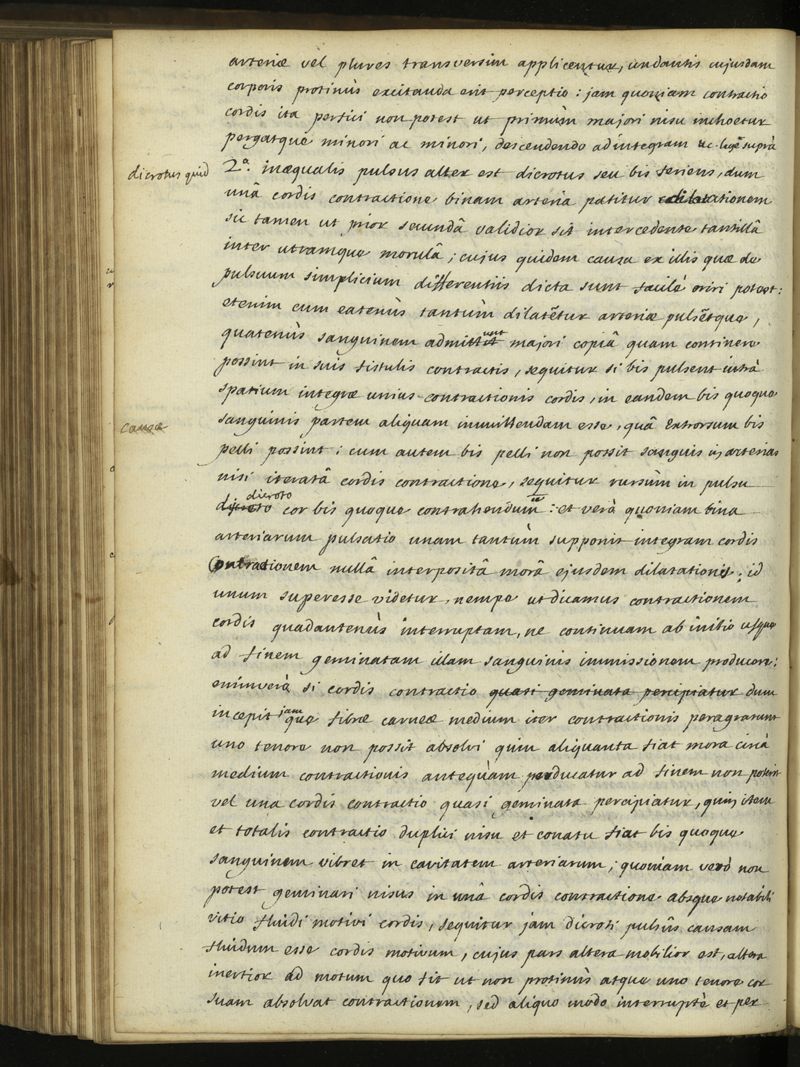 arteriæ vel plures transversim applicentur, undantis cujusdam
corporis protinùs excitanda erit perceptio : jam quoniam contractio
cordis ita perfici non potest ut primùm majori nisu inchoetur
pergatque minori ac minori, descendendo ad integram ac lege suprà
dicrotus quid
2.a inæqualis pulsus alter est dicrotus seu bis feriens, dum
unâ cordis contractione binam arteria patitur dilatationem
sic tamen ut prior secundâ validior sit intercedente tantillâ
inter utramque morulâ ; cujus quidem causa ex illis quæ de
pulsuum simplicium differentiis dicta sunt facilè oriri potest :
etenim cum eatenùs tantùm dilatêtur arteriæ pulsêtque,
quatenùs sanguinem admittunt majori copiâ quam continere
possint in suis fistulis contractis, sequitur si bis pulsent intrà
spatium integræ unius contractionis cordis, in eandem bis quoque
causa
sanguinis partem aliquam immittendam esse, quâ extrorsum bis
pelli possint : cum autem bis pelli non possit sanguis in arterias
nisi iteratâ cordis contractione, sequitur rursùm in pulsu
dicroto cor bis quoque contrahendum : et verà quoniam bina
arteriarum pulsatio unam tantùm supponit integram cordis
contractionem nullâ interpositâ morâ ejusdem dilatationis ; id
unum superesse videtur, nempe ut dicamus contractionem
cordis quadantenùs interruptam, ne continuam ab initio usque
ad finem geminatam illam sanguinis immissionem producere ;
enimverò si cordis contractio quasi geminata percipiatur dum
incepit jam que fibræ carneæ medium iter contractionis peragrarunt
uno tenore non possit absolvi quin aliquanta fiat mora circà
medium contractionis antequàm perducatur ad finem non poterit
vel una cordis contractio quasi geminata percipiatur, quin item
et totalis contractio duplici nisu et conatu fiat bis quoque
sanguinem vibret in cavitatem arteriarum ; quoniam verò non
potest geminari nisus in unâ cordis contractione absque notabili
vitio fluidi motivi cordis, sequitur jam dicroti pulsûs causam
fluidum esse cordis motivum, cujus pars altera mobilior est, altera
inertior ad motum quo fit ut non protinùs atque uno tenore cor
suam absolvat contractionem, sed aliquo modo interruptè et per